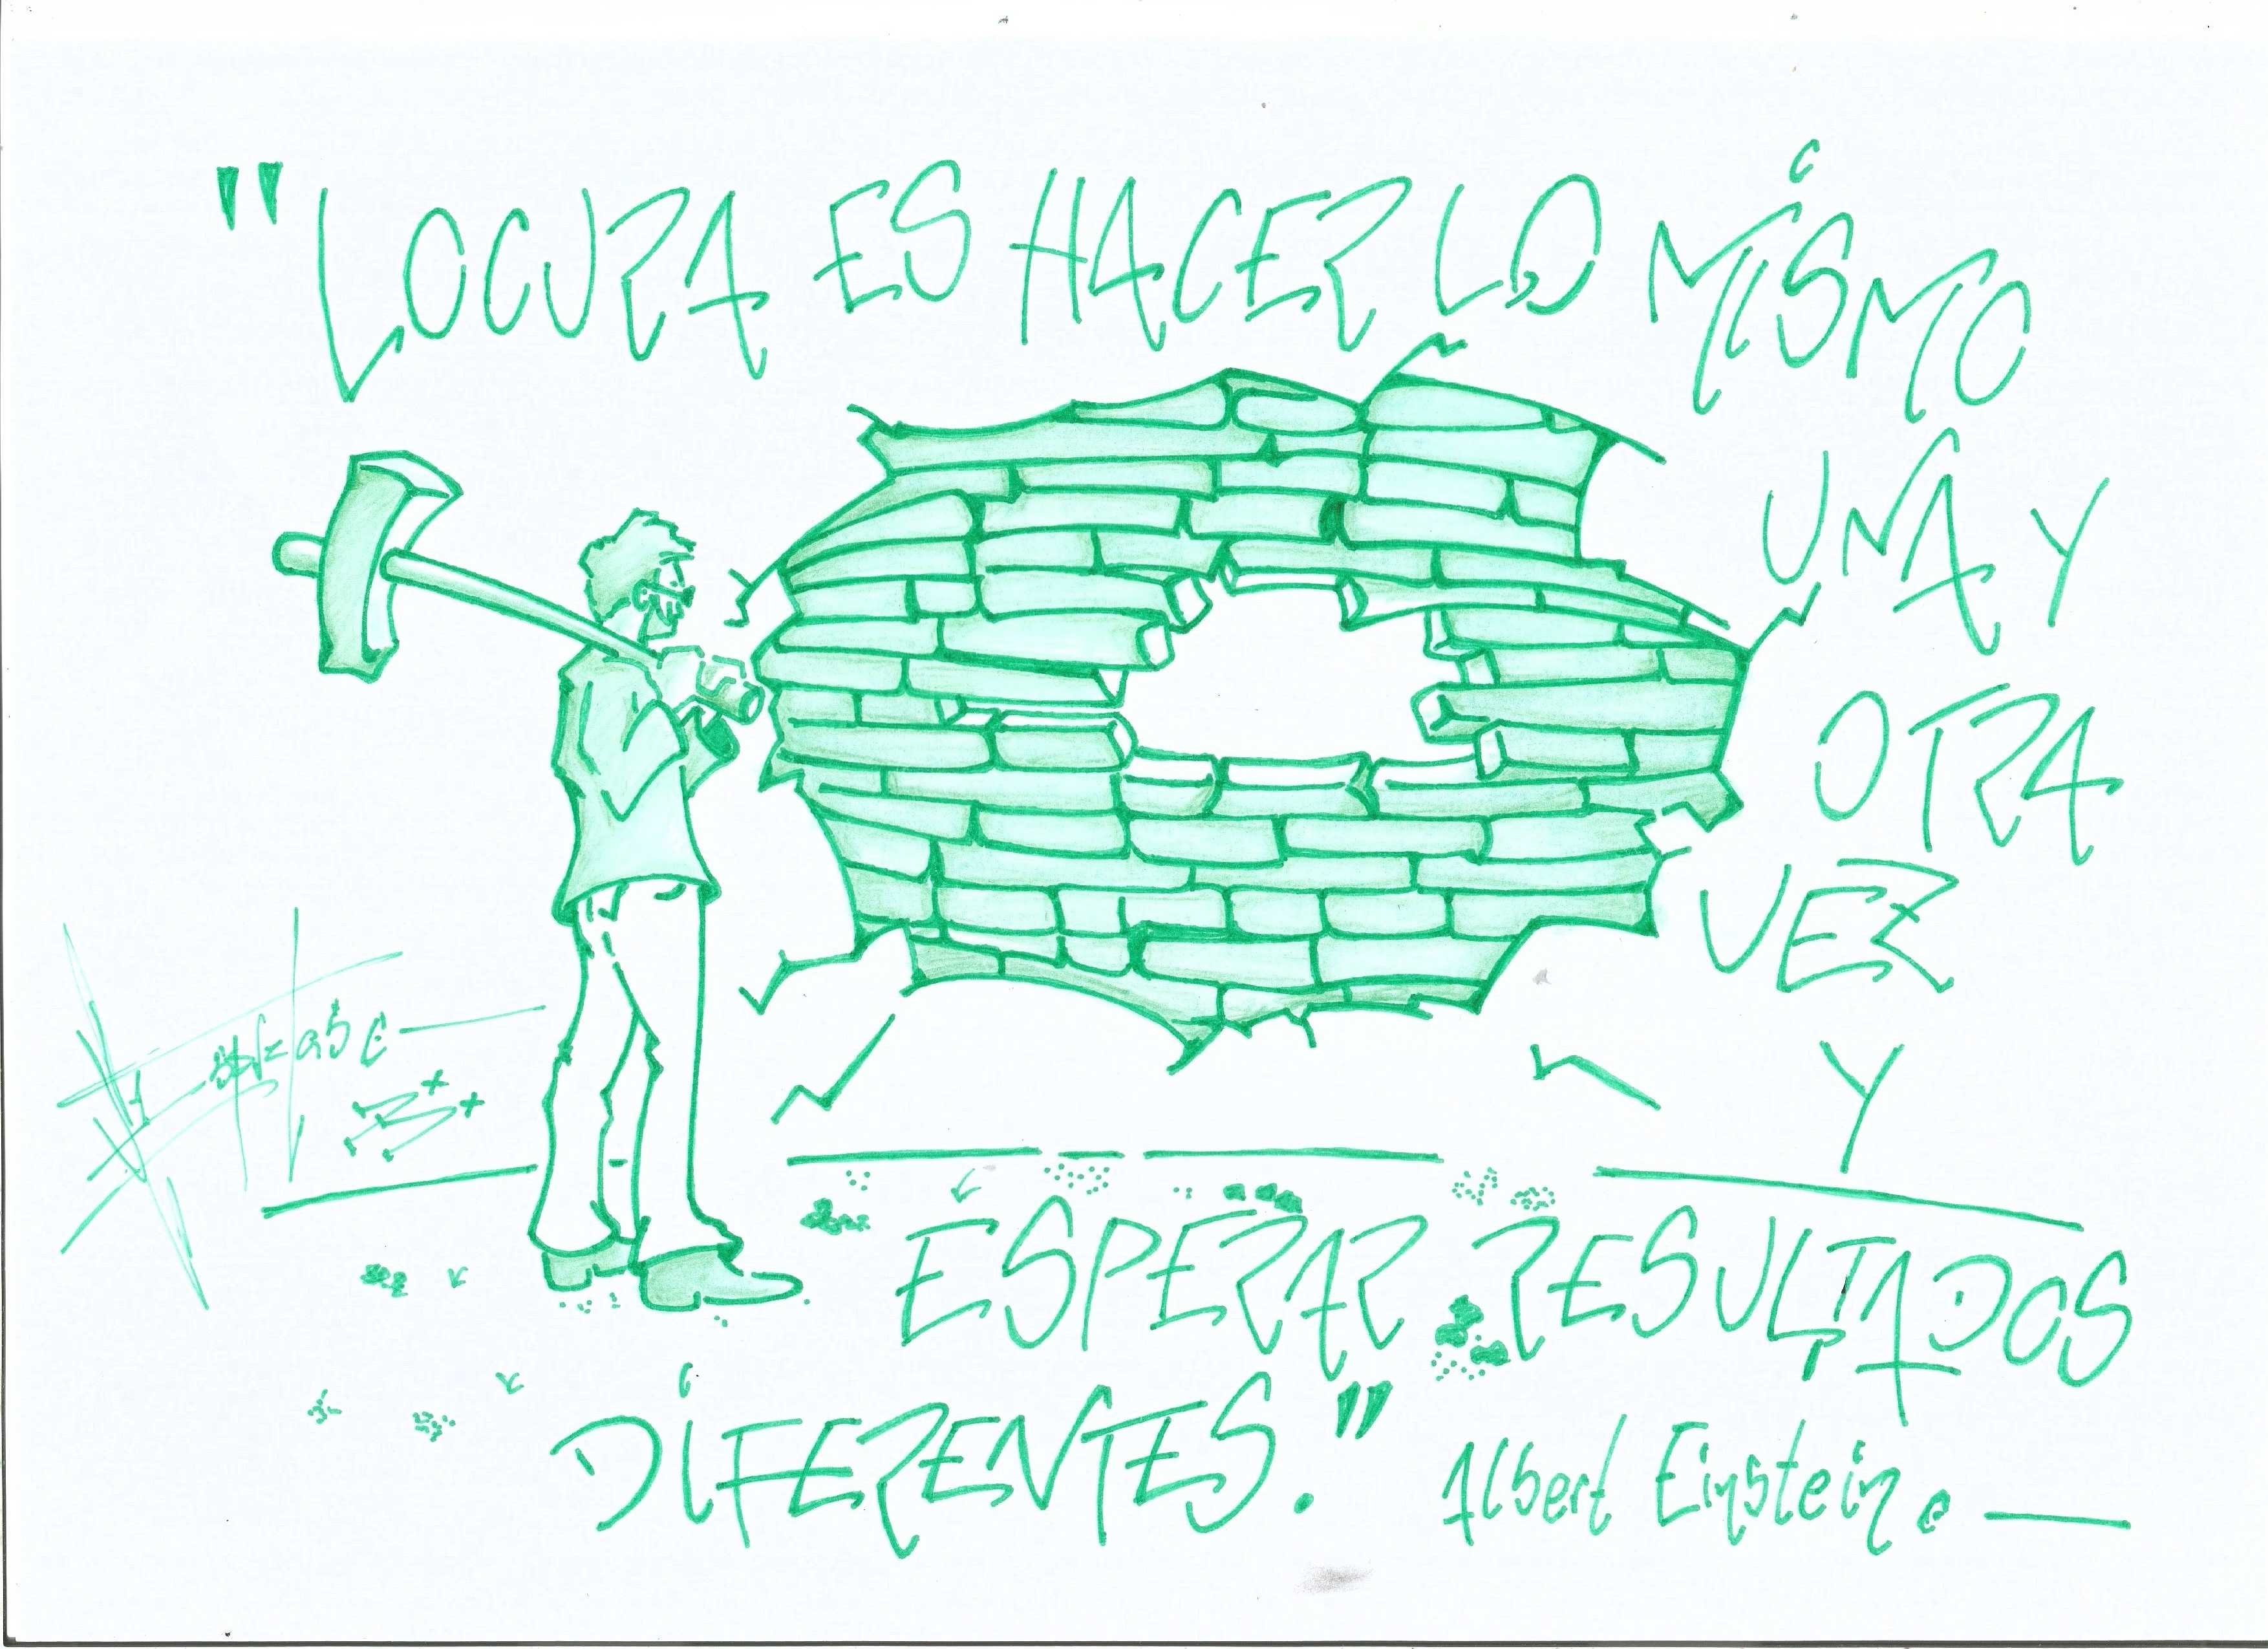 "LOCURA ES HACER LO MISMO
UNA Y
OTRA
VEZ
Y
ESPERAR RESULTADOS
DIFERENTES."
Albert Einstein.